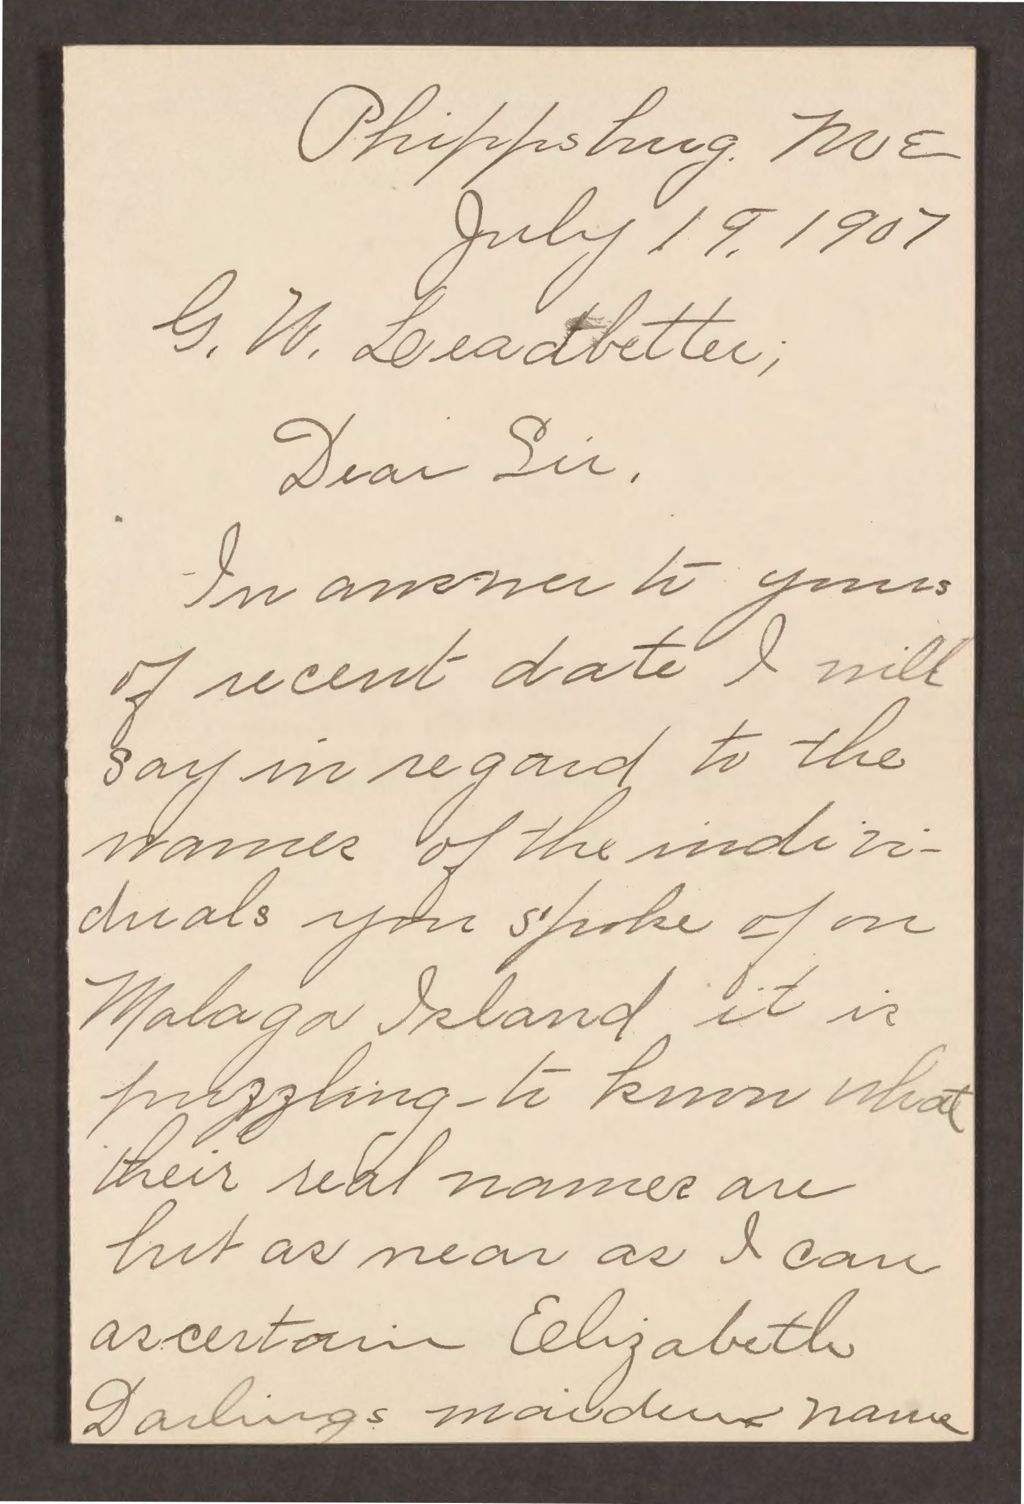 Phippsburg. ME
July 19, 1907
G. W. Leadbetter;
Dear Sir,
In answer to yours
of recent date I will
say in regard to the
names of the indivi-
duals you spoke of on
Malaga Island it is
puzzling to know what
their real names are
but as near as I can
ascertain Elizabeth
Darlings maiden name